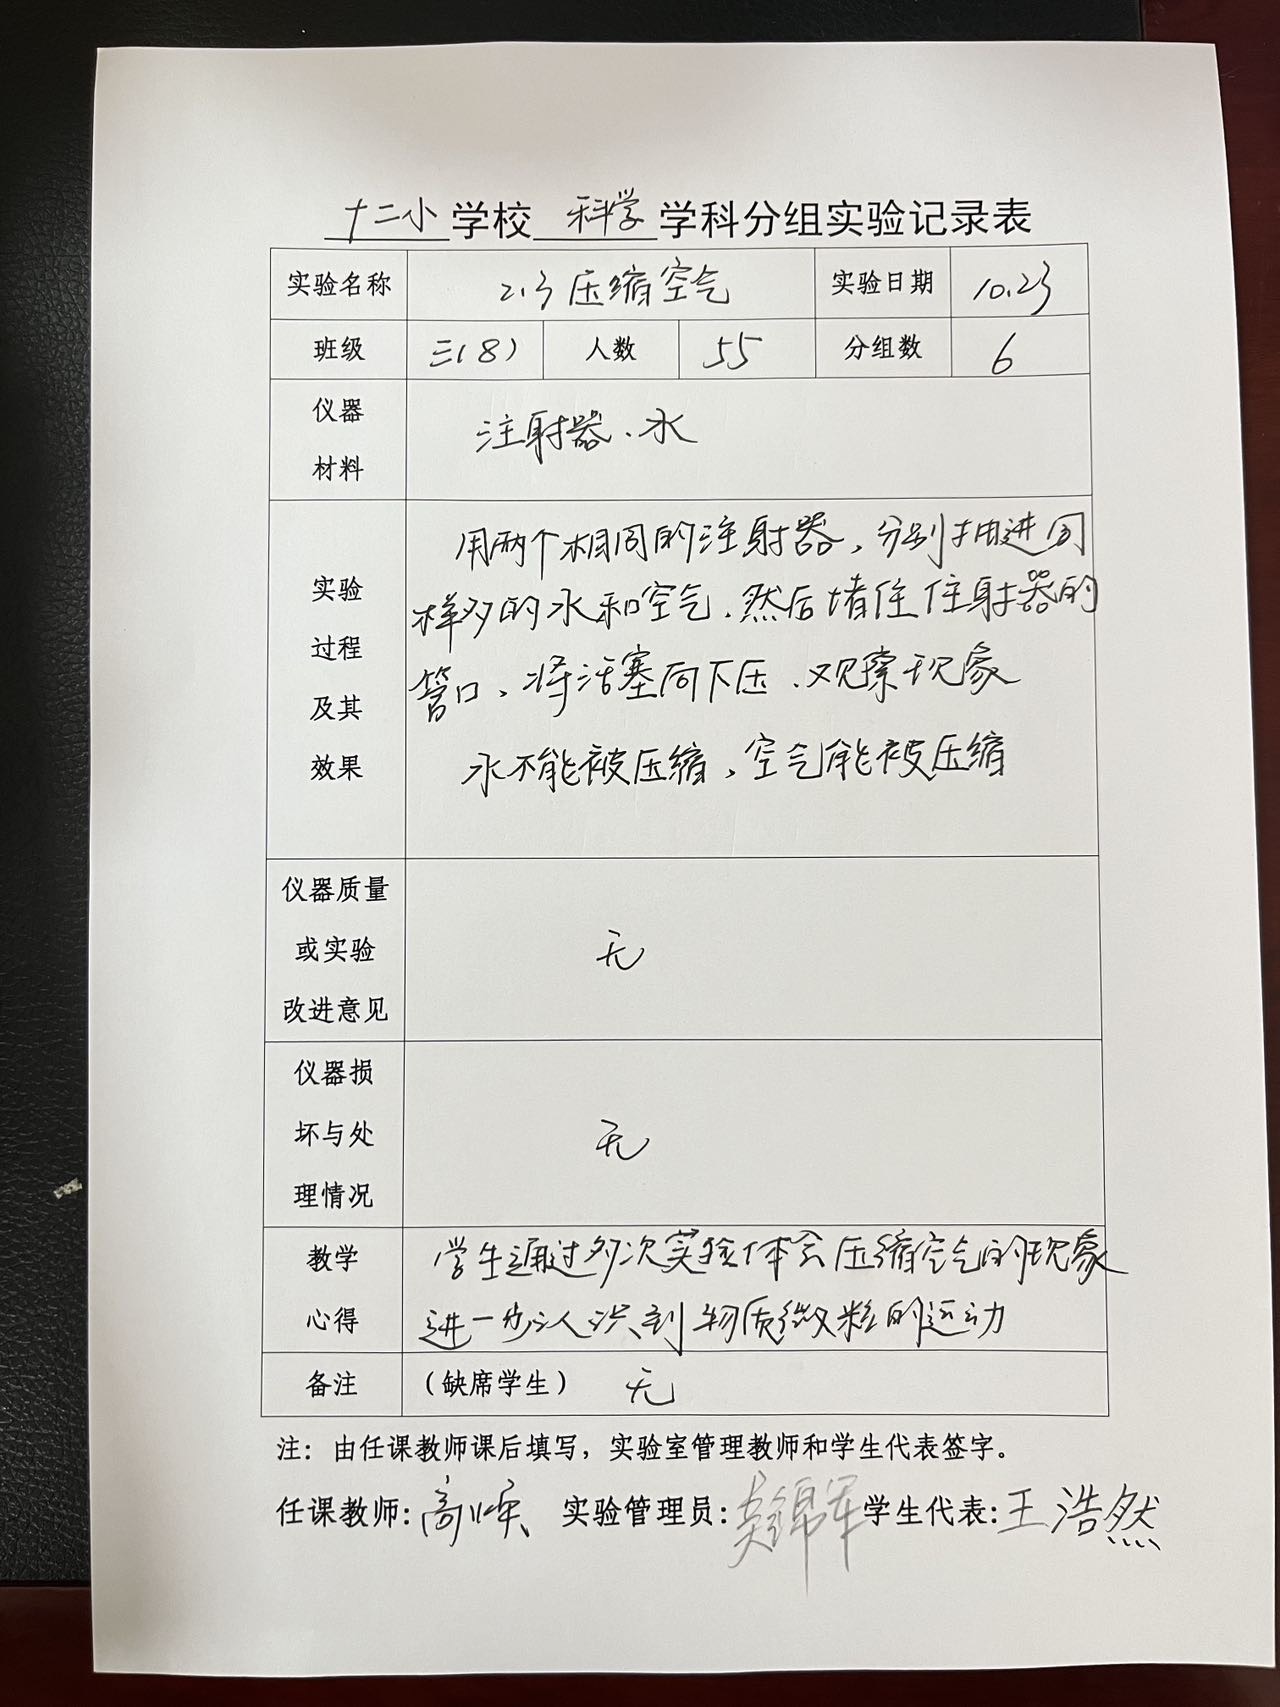 十二小学校 科学 学科分组实验记录表
实验名称 2.3 压缩空气 实验日期 10.23
班级 三(8) 人数 55 分组数 6
仪器
材料
注射器、水
实验
过程
及其
效果
用两个相同的注射器,分别抽进同
样多的水和空气、然后堵住住射器的
管口、将活塞向下压、观察现象
水不能被压缩、空气能被压缩
仪器质量
或实验
改进意见
无
仪器损
坏与处
理情况
无
教学
心得
学生通过多次实验体会压缩空气的现象
进一步认识到物质微粒的运动
备注 (缺席学生) 无
注:由任课教师课后填写,实验室管理教师和学生代表签字。
任课教师:高 实验管理员:锦军 学生代表:王浩然